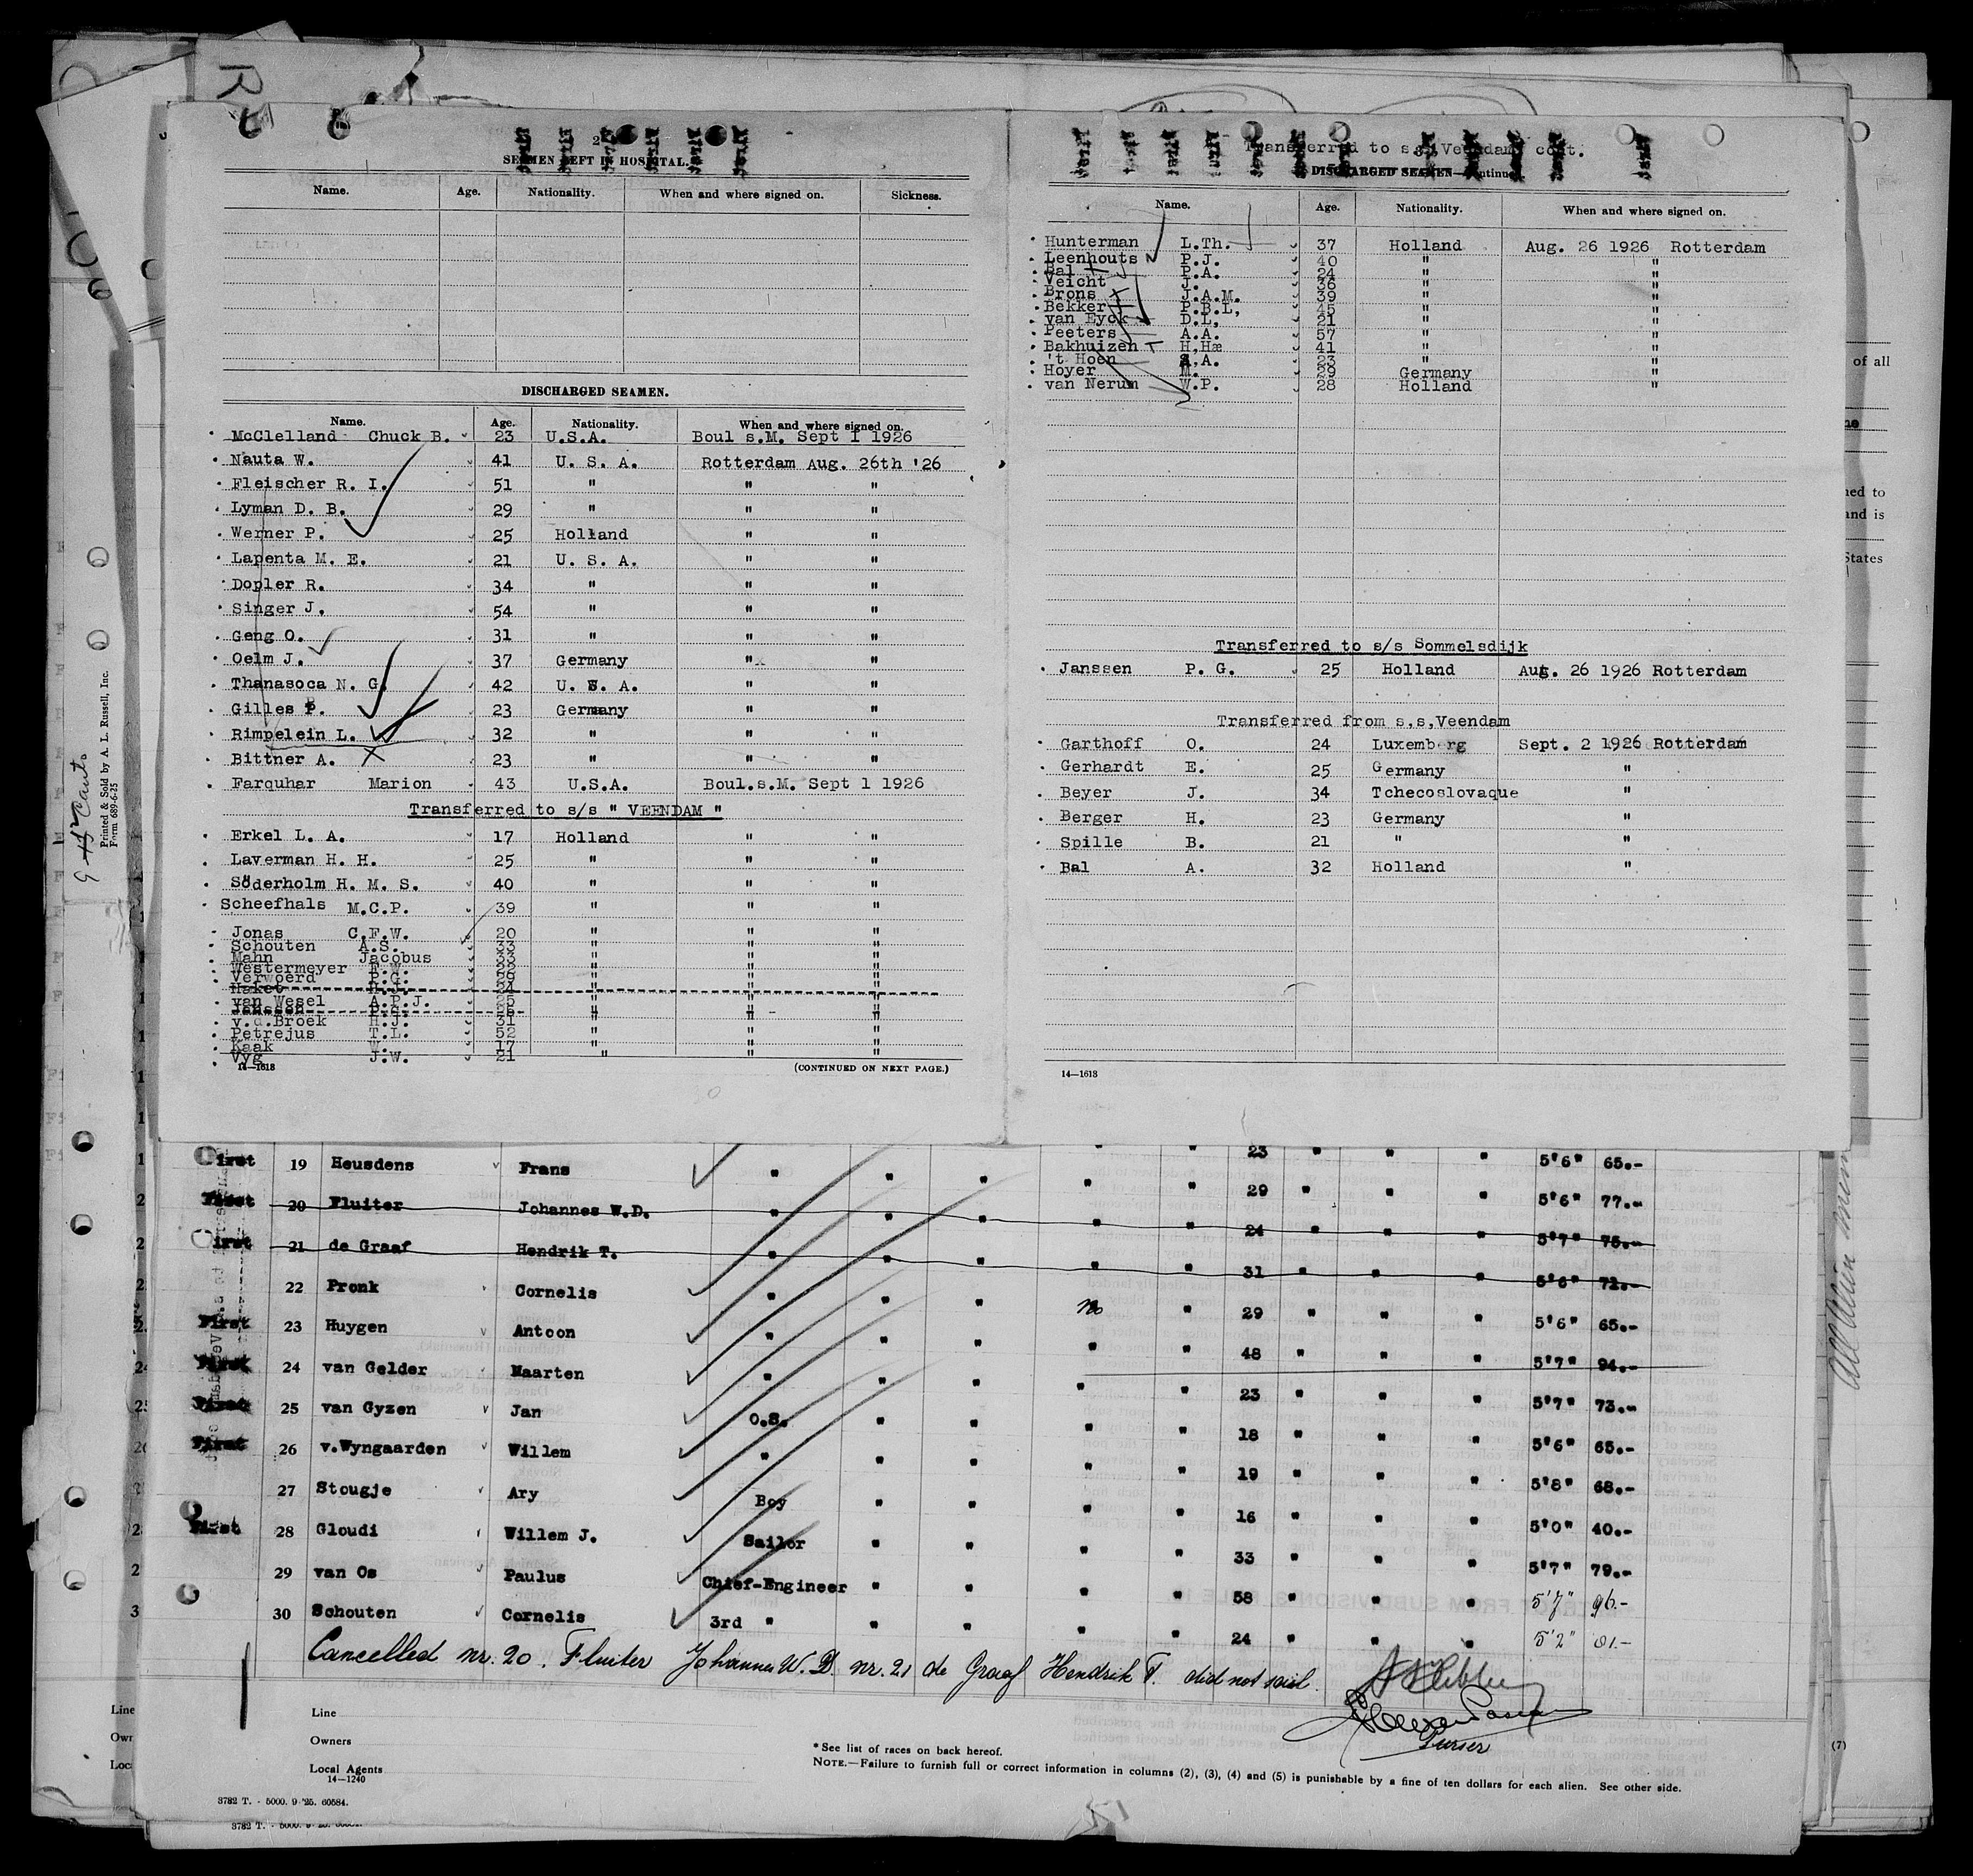 2
SEAMEN LEFT IN HOSPITAL.
Name. Age. Nationality. When and where signed on. Sickness.
DISCHARGED SEAMEN.
Name. Age. Nationality. When and where signed on.
McClelland Chuck B. 23 U.S.A. Boul s.M. Sept 1 1926
Nauta W. 41 U. S. A. Rotterdam Aug. 26th '26
Fleischer R. I. 51 " " "
Lyman D. B. 29 " " "
Werner P. 25 Holland " "
Lapenta M. E. 21 U. S. A. " "
Dopler R. 34 " " "
Singer J. 54 " " "
Geng O. 31 " " "
Oelm J. 37 Germany " "
Thanasoca N. G. 42 U. S. A. " "
Gilles P. 23 Germany " "
Rimpelein L. 32 " " "
Bittner A. 23 " " "
Farquhar Marion 43 U.S.A. Boul.s.M. Sept 1 1926
Transferred to s/s " VEENDAM "
Erkel L. A. 17 Holland " "
Laverman H. H. 25 " " "
Söderholm H. M. S. 40 " " "
Scheefhals M.C.P. 39 " " "
Jonas C.F.W. 20 " " "
Schouten A.S. 33 " " "
Mahn Jacobus 33 " " "
Westermeyer F.W. 22 " " "
Verwoerd P.G. 29 " " "
Haket H.J. 24
van Wesel A.P.J. 25 " " "
Janssen P.G. 25 " " "
v.d.Broek H.J. 31
Petrejus T.L. 52 " " "
Kaak W. 17 " " "
Vyg J.W. 21 " " "
14—1613 (CONTINUED ON NEXT PAGE.)
Transferred to s.s.Veendam cont.
DISCHARGED SEAMEN—Continued
Name. Age. Nationality. When and where signed on.
Hunterman L.Th. 37 Holland Aug. 26 1926 Rotterdam
Leenhouts P.J. 40 " "
Bal P.A. 24 " "
Veicht J. 36 " "
Brons J.A.M. 39 " "
Bekker P.B.L, 45 " "
van Eyck D.L, 21 " "
Peeters A.A. 57 " "
Bakhuizen H.H 41 " "
't Hoen A.A. 23 " "
Hoyer M. 29 Germany "
van Nerum W.P. 28 Holland "
Transferred to s/s Sommelsdijk
Janssen P. G. 25 Holland Aug. 26 1926 Rotterdam
Transferred from s,s,Veendam
Garthoff O. 24 Luxemberg Sept. 2 1926 Rotterdam
Gerhardt E. 25 Germany "
Beyer J. 34 Tchecoslovaque "
Berger H. 23 Germany "
Spille B. 21 " "
Bal A. 32 Holland "
14—1613
Printed & Sold by A. L. Russell, Inc.
Form 689-6-25
of all
ned to
and is
States
First 19 Heusdens Frans " " " " " 23 " " " 5'6" 65.-
First 20 Fluiter Johannes W.D. " " " " " 29 " " " 5'6" 77.-
First 21 de Graaf Hendrik T. " " " " " 24 " " " 5'7" 75.-
22 Pronk Cornelis " " " " " 31 " " " 5'6" 72.-
First 23 Huygen Antoon " " " no " 29 " " " 5'6" 65.-
First 24 van Gelder Maarten " " " " " 48 " " " 5'7" 94.-
First 25 van Gyzen Jan O.S. " " " " 23 " " " 5'7" 73.-
First 26 v.Wyngaarden Willem " " " " " 18 " " " 5'6" 65.-
27 Stougje Ary Boy " " " " 19 " " " 5'8" 68.-
First 28 Gloudi Willem J. Sailor " " " " 16 " " " 5'0" 40.-
29 van Os Paulus Chief-Engineer " " " " 33 " " " 5'7" 79.-
30 Schouten Cornelis 3rd " " " " " 58 " " " 5'7" 96.-
24 " " " 5'2" 81.-
Cancelled nr. 20. Fluiter Johannes W.D. nr. 21 de Graaf Hendrik T. did not sail.
Purser
Line
Owners
Local Agents
14—1240
*See list of races on back hereof.
NOTE.—Failure to furnish full or correct information in columns (2), (3), (4) and (5) is punishable by a fine of ten dollars for each alien. See other side.
(7)
3782 T. - 5000. 9-'25. 60584.
3782 T. - 5000.